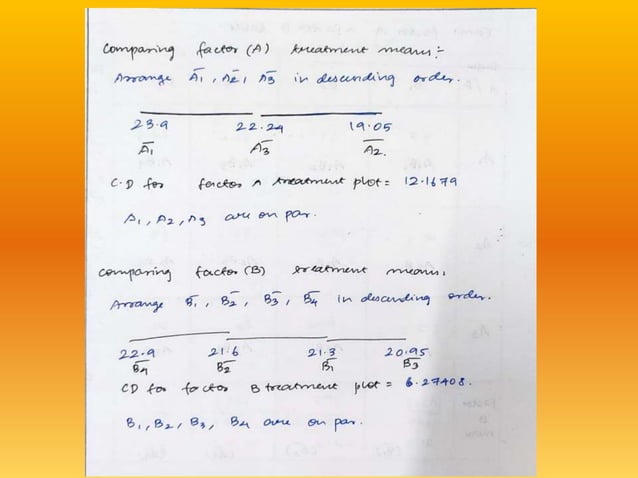 Comparing factor (A) treatment means:-
Arrange A̅1, A̅2, A̅3 in descending order.
23.9 22.24 19.05
A̅1 A̅3 A̅2
C.D for factor A treatment plot = 12.1679
A1, A2, A3 are on par.
Comparing factor (B) treatment means,
Arrange B̅1, B̅2, B̅3, B̅4 in descending order.
22.9 21.6 21.3 20.95
B̅4 B̅2 B̅1 B̅3
CD for factor B treatment plot = 6.27408.
B1, B2, B3, B4 are on par.